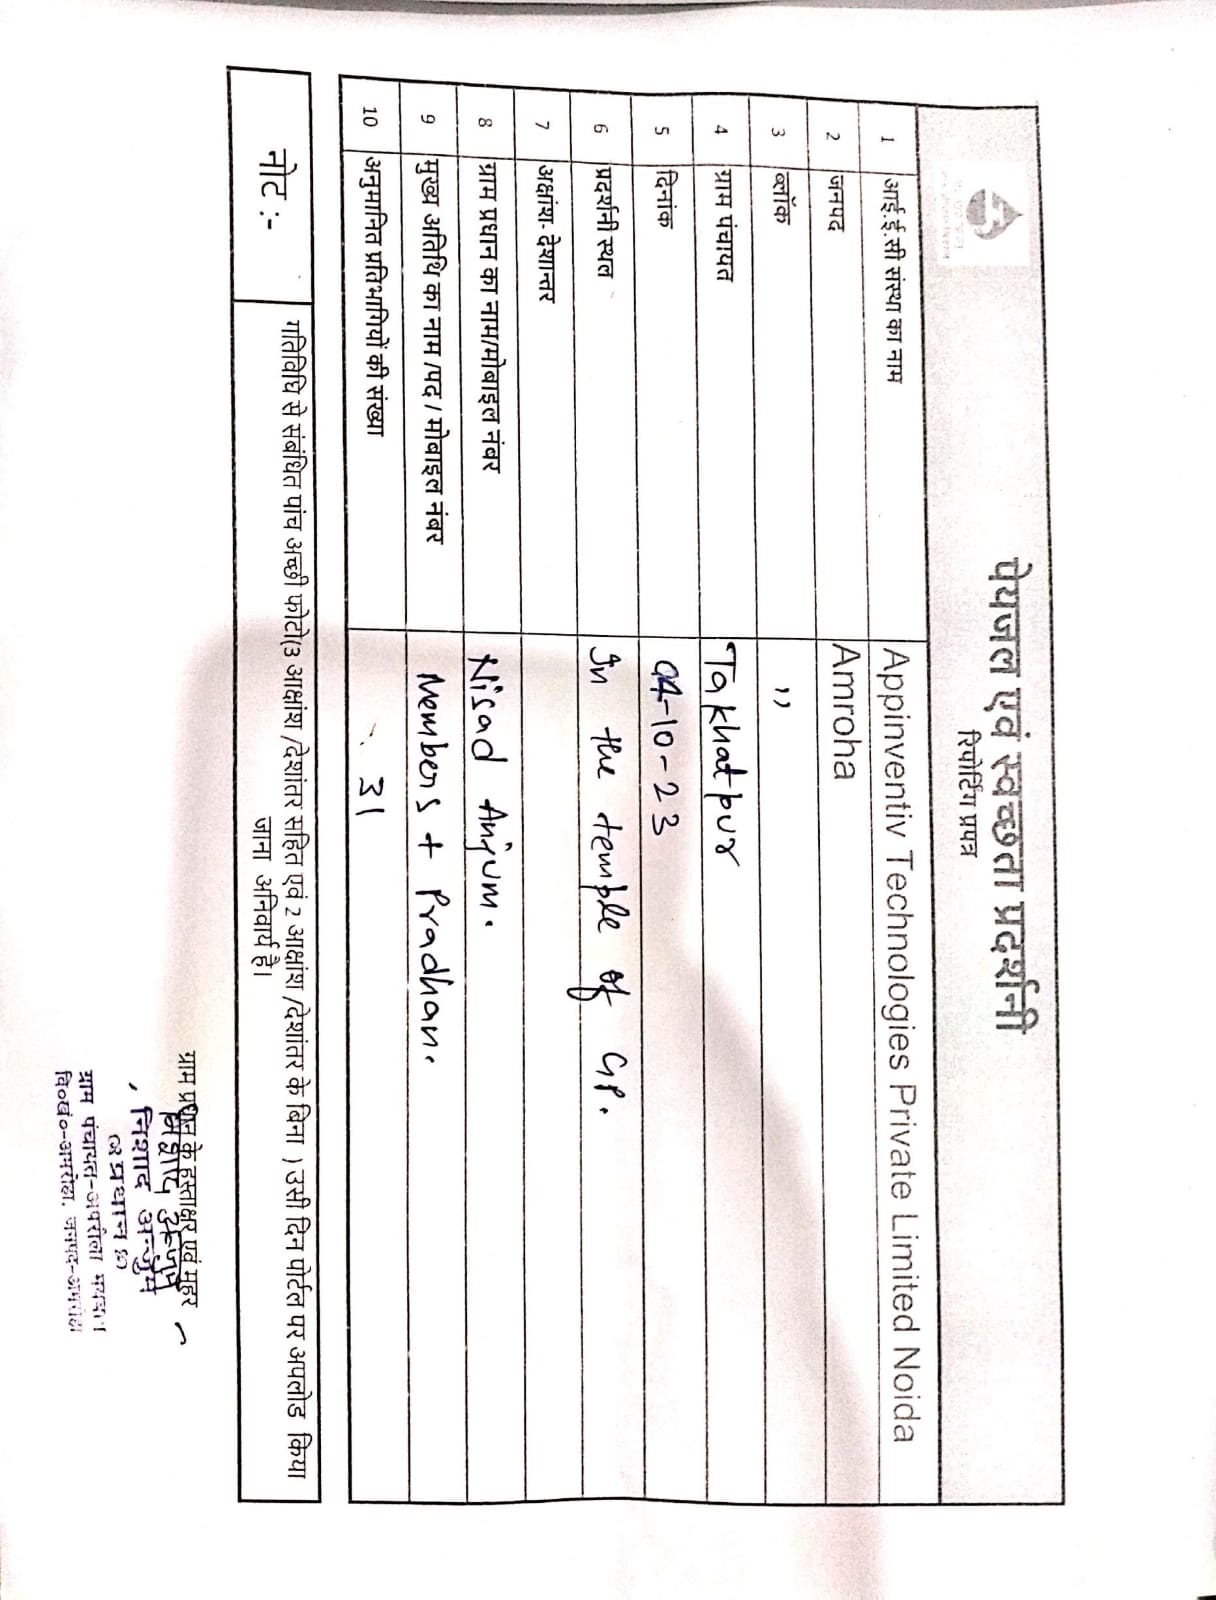 पेयजल एवं स्वच्छता प्रदर्शनी
रिपोर्टिंग प्रपत्र
1 आई.ई.सी संस्था का नाम Appinventiv Technologies Private Limited Noida
2 जनपद Amroha
3 ब्लॉक ,,
4 ग्राम पंचायत Takhatpur
5 दिनांक 04-10-23
6 प्रदर्शनी स्थल In the temple of GP.
7 अक्षांश- देशान्तर
8 ग्राम प्रधान का नाम/मोबाइल नंबर Nisad Anjum.
9 मुख्य अतिथि का नाम /पद / मोबाइल नंबर Members + Pradhan.
10 अनुमानित प्रतिभागियों की संख्या 31
नोट :- गतिविधि से संबंधित पांच अच्छी फोटो(3 आक्षांश /देशांतर सहित एवं 2 आक्षांश /देशांतर के बिना ) उसी दिन पोर्टल पर अपलोड किया
जाना अनिवार्य है।
ग्राम प्रधान के हस्ताक्षर एवं मुहर
निशाद अन्जुम
निशाद अन्जुम
प्रधान
ग्राम पंचायत-
वि०खं०-अमरोहा, जनपद-अमरोहा